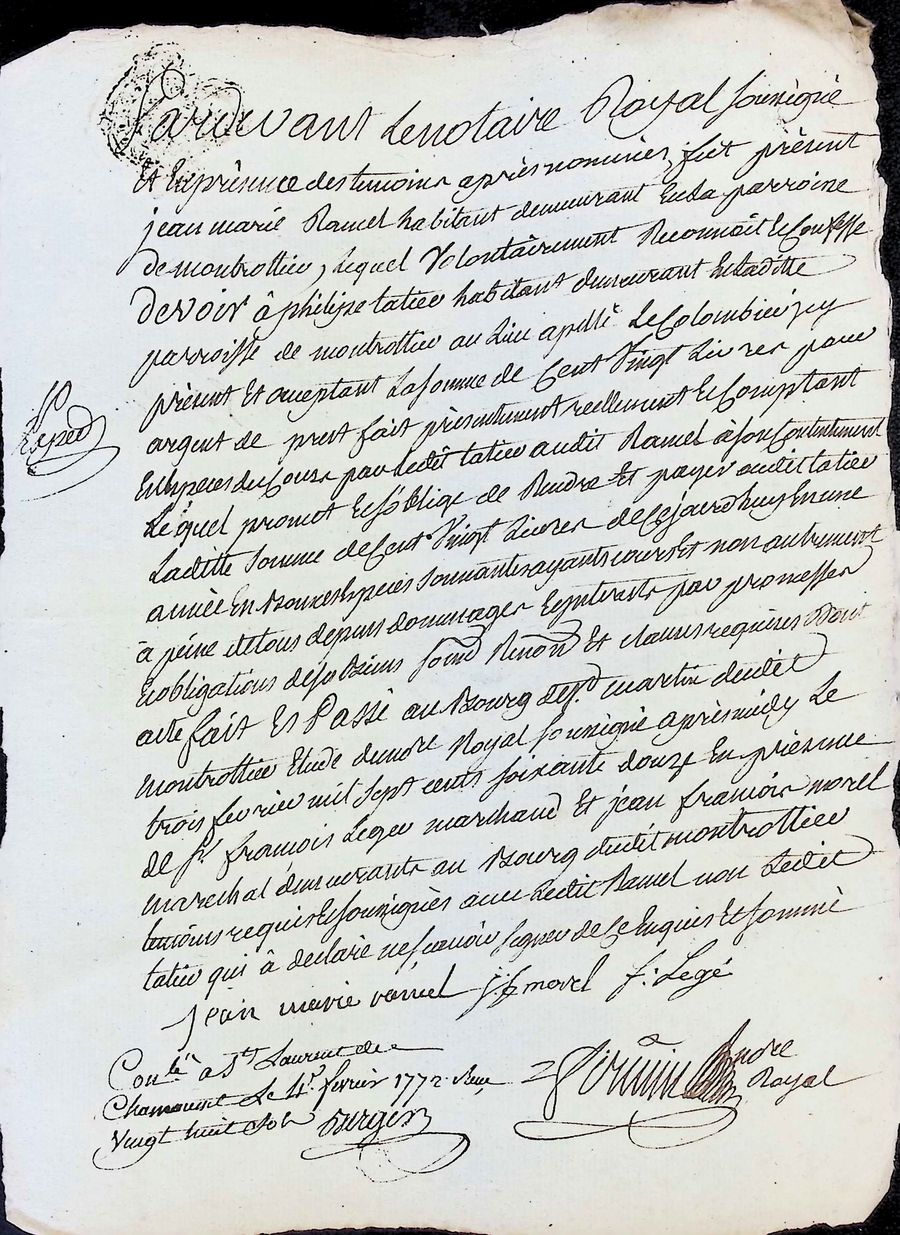 Pardevant Le notaire Royal sousigné
Et En prèsence des temoins après nommés, fut prèsent
jean marie Ramel habitant demeurant En la parroisse
de montrottier, lequel Volontairement Reconnoit Et Confesse
devoir à philipe tatier habitant demeurant En laditte
parroisse de montrottier au Lieu apellé Le Colombier icy
prèsent Et acceptant La somme de Cent Vingt Livres pour
argent de prest fait prèsentement reellement Et Comptant
En Especes du Cours par Ledit tatier audit Ramel à son Contentement
Lequel promet Et s'oblige de Rendre Et payer audit tatier
Laditte Somme de Cent Vingt Livres de Ce jourd'huy En une
année En Bonnes Especes Sonnantes ayants cours Et non autrement
à peine de tous depens dommages Et interests par promesses
Et obligations de ses Biens Soumd Renond Et clauses requises Dont
acte fait Et Passé au Bourg de St martin dudit
montrottier Etude du nore Royal sousigné après midy Le
trois fevrier mil Sept cents soixante douze En prèsence
de Sr. françois Leger marchand Et jean françois morel
marechal demeurants au Bourg dudit montrottier
temoins requis Et sousignès avec Ledit Ramel non Ledit
tatier qui à declaré ne sçavoir signer de Ce Enquis Et sommé
jean marie ramel j. f. morel f: Legé
Exped
Conlé. à St Laurent de
Chamousset Le 4r. fevrier 1772. Reçu
Vingt huit sols
nore
Royal